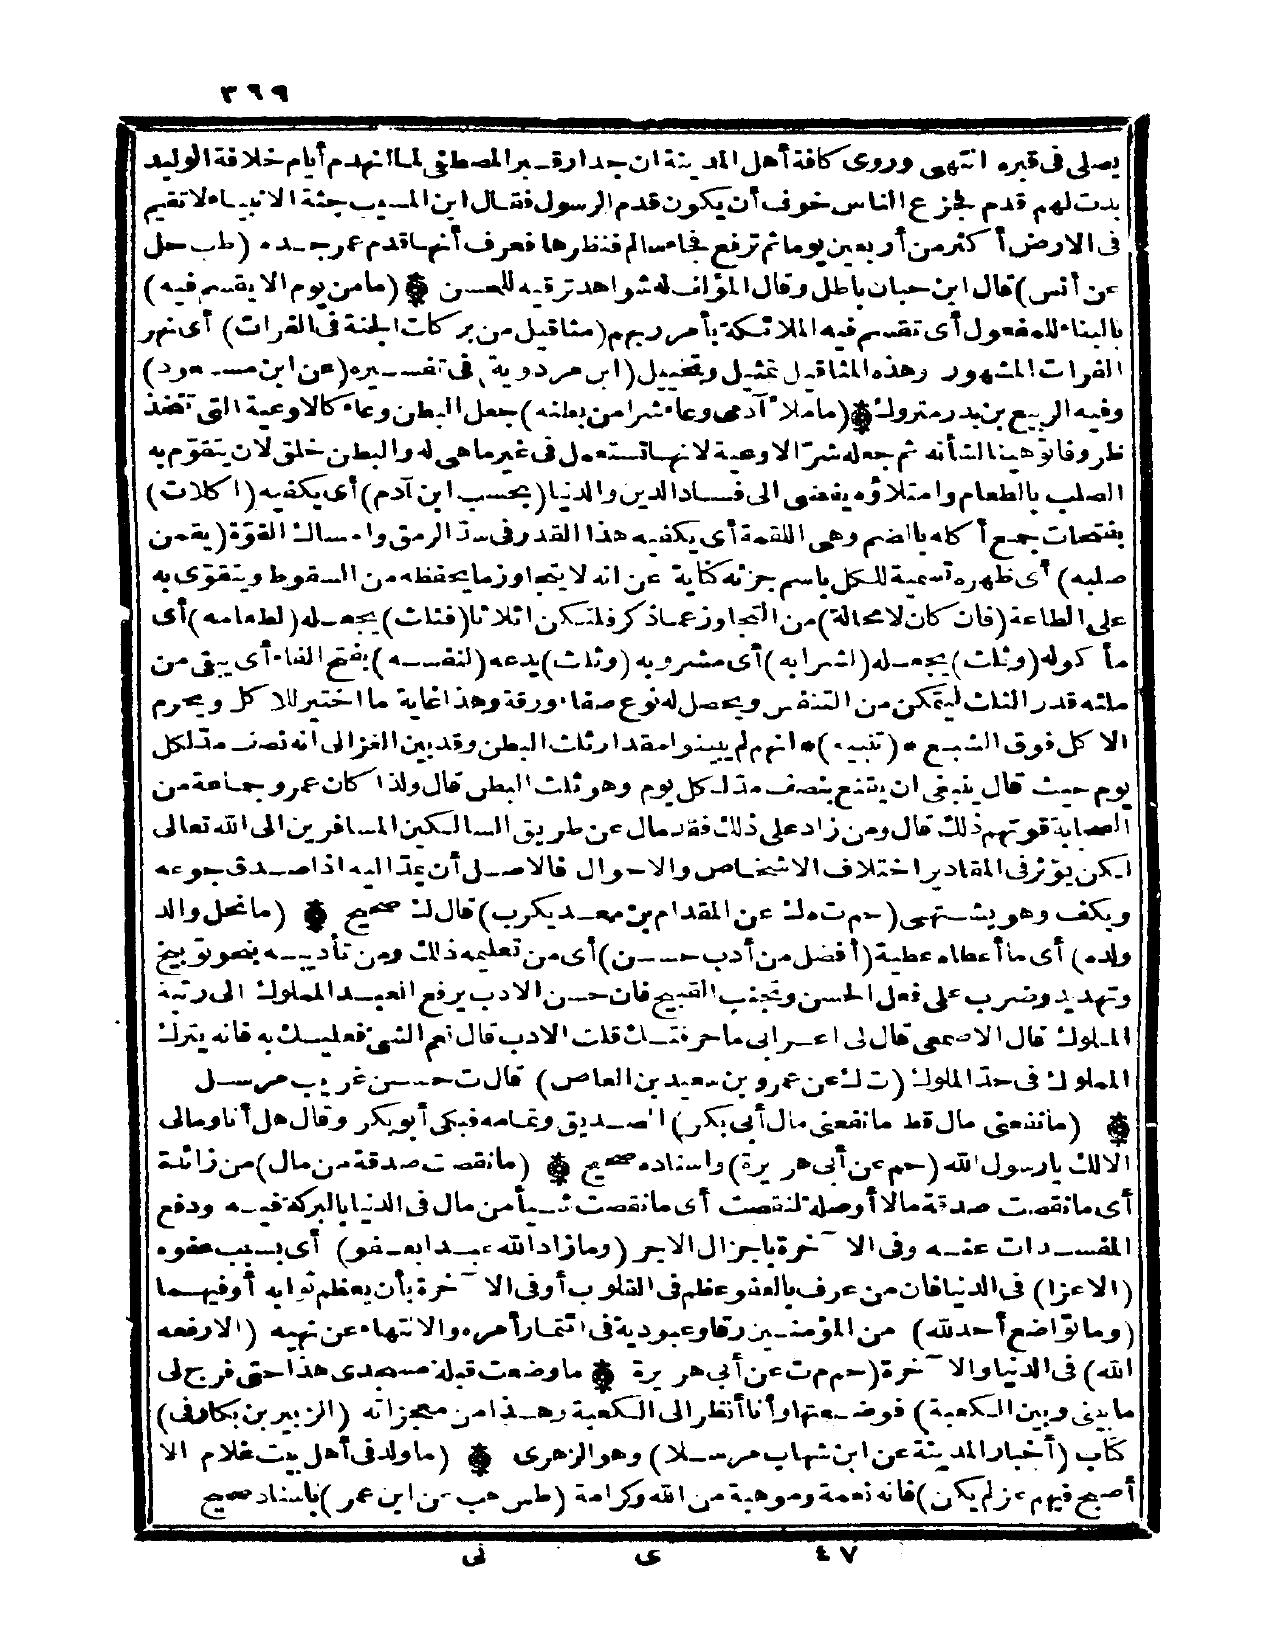 ٣٦٩
يصلى فى قبره انتهى وروى كافة أهل المدينة ان جدار قبر المصطفى لما انهدم أيام خلافة الوليد
بدت لهم قدم فجزع الناس خوف أن يكون قدم الرسول فقال ابن المسيب جثة الانبياء لا تقيم
فى الارض أكثر من أربعين يوما ثم ترفع فجاء سالم فنظرها فعرف أنها قدم عمر جده (طب حل
عن أنس) قال ابن حبان باطل وقال المؤلف له شواهد ترقيه للحسن (مامن يوم الا يقسم فيه)
بالبناء للمفعول أى تقسم فيه الملائكة بأمر ربهم (مثاقيل من بركات الجنة فى الفرات) أى نهر
الفرات المشهور وهذه المثاقيل تمثيل وتخييل (ابن مردويه فى تفسيره (عن ابن مسعود)
وفيه الربيع بن بدر متروك (ما ملأ آدمى وعاء شرا من بطنه) جعل البطن وعاء كالاوعية التى تتخذ
ظروفا توهينا لشأنه ثم جعله شر الاوعية لانها تستعمل فى غير ما هى له والبطن خلق لان يتقوم به
الصلب بالطعام وامتلاؤه يفضى الى فساد الدين والدنيا (بحسب ابن آدم) أى يكفيه (اكلات)
بفتحات جمع أكله بالضم وهى اللقمة أى يكفيه هذا القدر فى سد الرمق وامساك القوة (يقمن
صلبه) أى ظهره تسمية للكل باسم جزئه كناية عن انه لا يتجاوز ما يحفظه من السقوط ويتقوى به
على الطاعة (فان كان لا محالة) من التجاوز عما ذكر فلتكن اثلاثا (فثلث) يجعله (لطعامه) أى
مأكوله (وثلث) يجعله (لشرابه) أى مشروبه (وثلث) يدعه (لنفسه) بفتح الفاء أى يبقى من
ملئه قدر الثلث ليتمكن من التنفس ويحصل له نوع صفاء ورقة وهذا غاية ما اختير للاكل ويحرم
الاكل فوق الشبع * (تنبيه) * انهم لم يبينوا مقدار ثلث البطن وقد بين الغزالى انه نصف مد لكل
يوم حيث قال ينبغى ان يقنع بنصف مد لكل يوم وهو ثلث البطن قال ولذا كان عمر وجماعة من
الصحابة قوتهم ذلك قال ومن زاد على ذلك فقد مال عن طريق السالكين المسافرين الى الله تعالى
لكن يؤثر فى المقادير اختلاف الاشخاص والاحوال فالاصل أن يمد اليه اذا صدق جوعه
ويكف وهو يشتهى (حم ت ه ك عن المقدام بن معد يكرب) قال ك صحيح (ما نحل والد
ولده) أى ما أعطاه عطية (أفضل من أدب حسن) أى من تعليمه ذلك ومن تأديبه بنحو توبيخ
وتهديد وضرب على فعل الحسن وتجنب القبيح فان حسن الادب يرفع العبد المملوك الى رتبة
الملوك قال الاصمعى قال لى اعرابى ما حرفتك قلت الادب قال نعم الشئ فعليك به فانه يترك
المملوك فى حد الملوك (ت ك عن عمرو بن سعيد بن العاص) قال ت حسن غريب مرسل
(ما نفعنى مال قط ما نفعنى مال أبى بكر) الصديق وتمامه فبكى أبو بكر وقال هل أنا ومالى
الا لك يا رسول الله (حم عن أبى هريرة) واسناده صحيح (ما نقصت صدقة من مال) من زائدة
أى ما نقصت صدقة مالا أو صلة لنقصت أى ما نقصت شيأ من مال فى الدنيا بالبركة فيه ودفع
المفسدات عنه وفى الآخرة باجزال الاجر (وما زاد الله عبدا بعفو) أى بسبب عفوه
(الا عزا) فى الدنيا فان من عرف بالعفو عظم فى القلوب أو فى الآخرة بأن يعظم ثوابه أو فيهما
(وما تواضع أحد لله) من المؤمنين رقا وعبودية فى ائتمار أمره والانتهاء عن نهيه (الا رفعه
الله) فى الدنيا والآخرة (حم م ت عن أبى هريرة ما وضعت قبلة مسجدى هذا حتى فرج لى
ما بينى وبين الكعبة) فوضعتها وأنا أنظر الى الكعبة وهذا من معجزاته (الزبير بن بكار فى)
كتاب (أخبار المدينة عن ابن شهاب مرسلا) وهو الزهرى (ما ولد فى أهل بيت غلام الا
أصبح فيهم عز لم يكن) فانه نعمة وموهبة من الله وكرامة (طس هب عن ابن عمر) باسناد صحيح
٤٧ ى نى